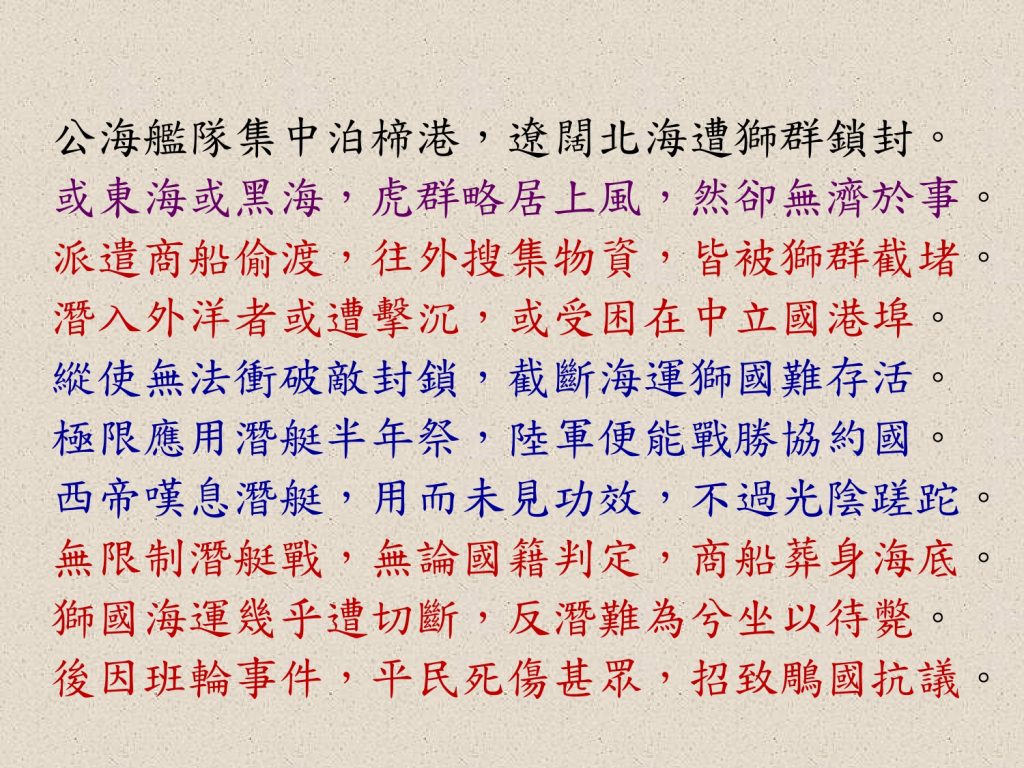 公海艦隊集中泊楴港，遼闊北海遭獅群鎖封。
或東海或黑海，虎群略居上風，然卻無濟於事。
派遣商船偷渡，往外搜集物資，皆被獅群截堵。
潛入外洋者或遭擊沉，或受困在中立國港埠。
縱使無法衝破敵封鎖，截斷海運獅國難存活。
極限應用潛艇半年祭，陸軍便能戰勝協約國。
西帝嘆息潛艇，用而未見功效，不過光陰蹉跎。
無限制潛艇戰，無論國籍判定，商船葬身海底。
獅國海運幾乎遭切斷，反潛難為兮坐以待斃。
後因班輪事件，平民死傷甚眾，招致鵰國抗議。